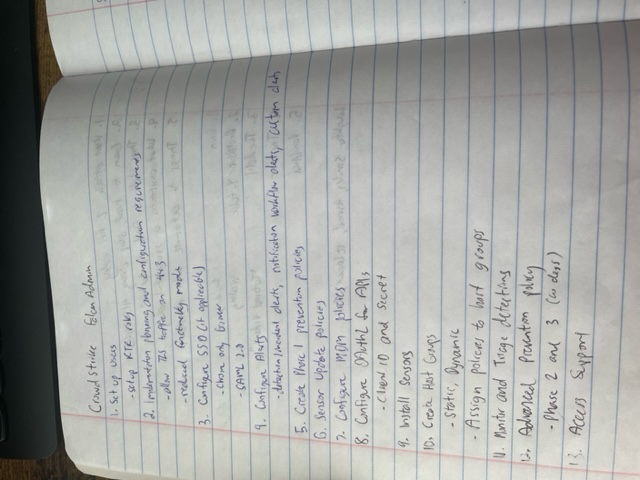 CrowdStrike Falcon Admin
1. Set up users
-setup RTR roles
2. Implementation planning and configuration requirements
-allow TLS traffic on 443
-reduced functionality mode
3. Configure SSO (if applicable)
-Chrome only browser
-SAML 2.0
4. Configure Alerts
-detection/incident alerts, notification workflow alerts, custom alerts
5. Create Phase 1 prevention policies
6. Sensor Update policies
7. Configure MDM policies
8. Configure OAuth2 for APIs
-Client ID and Secret
9. Install Sensors
10. Create Host Groups
-Static, Dynamic
-Assign policies to host groups
11. Monitor and Triage detections
12. Advanced Prevention policy
-Phase 2 and 3 (60 days)
13. Access Support